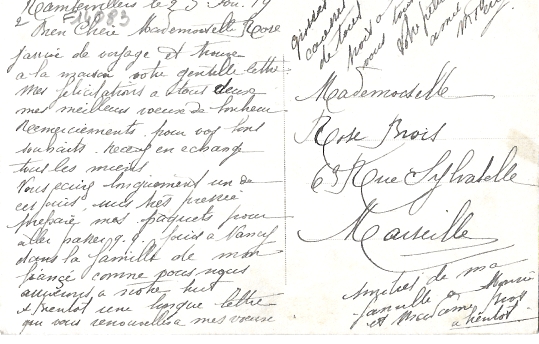 Rambervillers le 23 19
14083
2
Bien Chère Mademoiselle Rose
J'arrive de voyage et trouve
a la maison votre gentille lettre
Mes félicitations a tous deux
mes meilleurs voeux de bonheur
Remerciements pour vos bons
souhaits. Recevez en échange
tous les miens
Vous écris longuement un de
ces jours, suis très pressée
prépare mes paquets pour
aller passer q.q. jours a Nancy
dans la famille de mon
fiancé comme vous nous
arrivons a notre but
A bientôt une longue lettre
qui vous renouvellera mes voeux
grosses
caresses
de tous
trois a
vous tous
votre petite
amie
Mademoiselle
Rose Brois
63 Rue Sylvabelle
Marseille
Amitiés de ma
famille a Monsieur
et Madame Brois
a bientôt